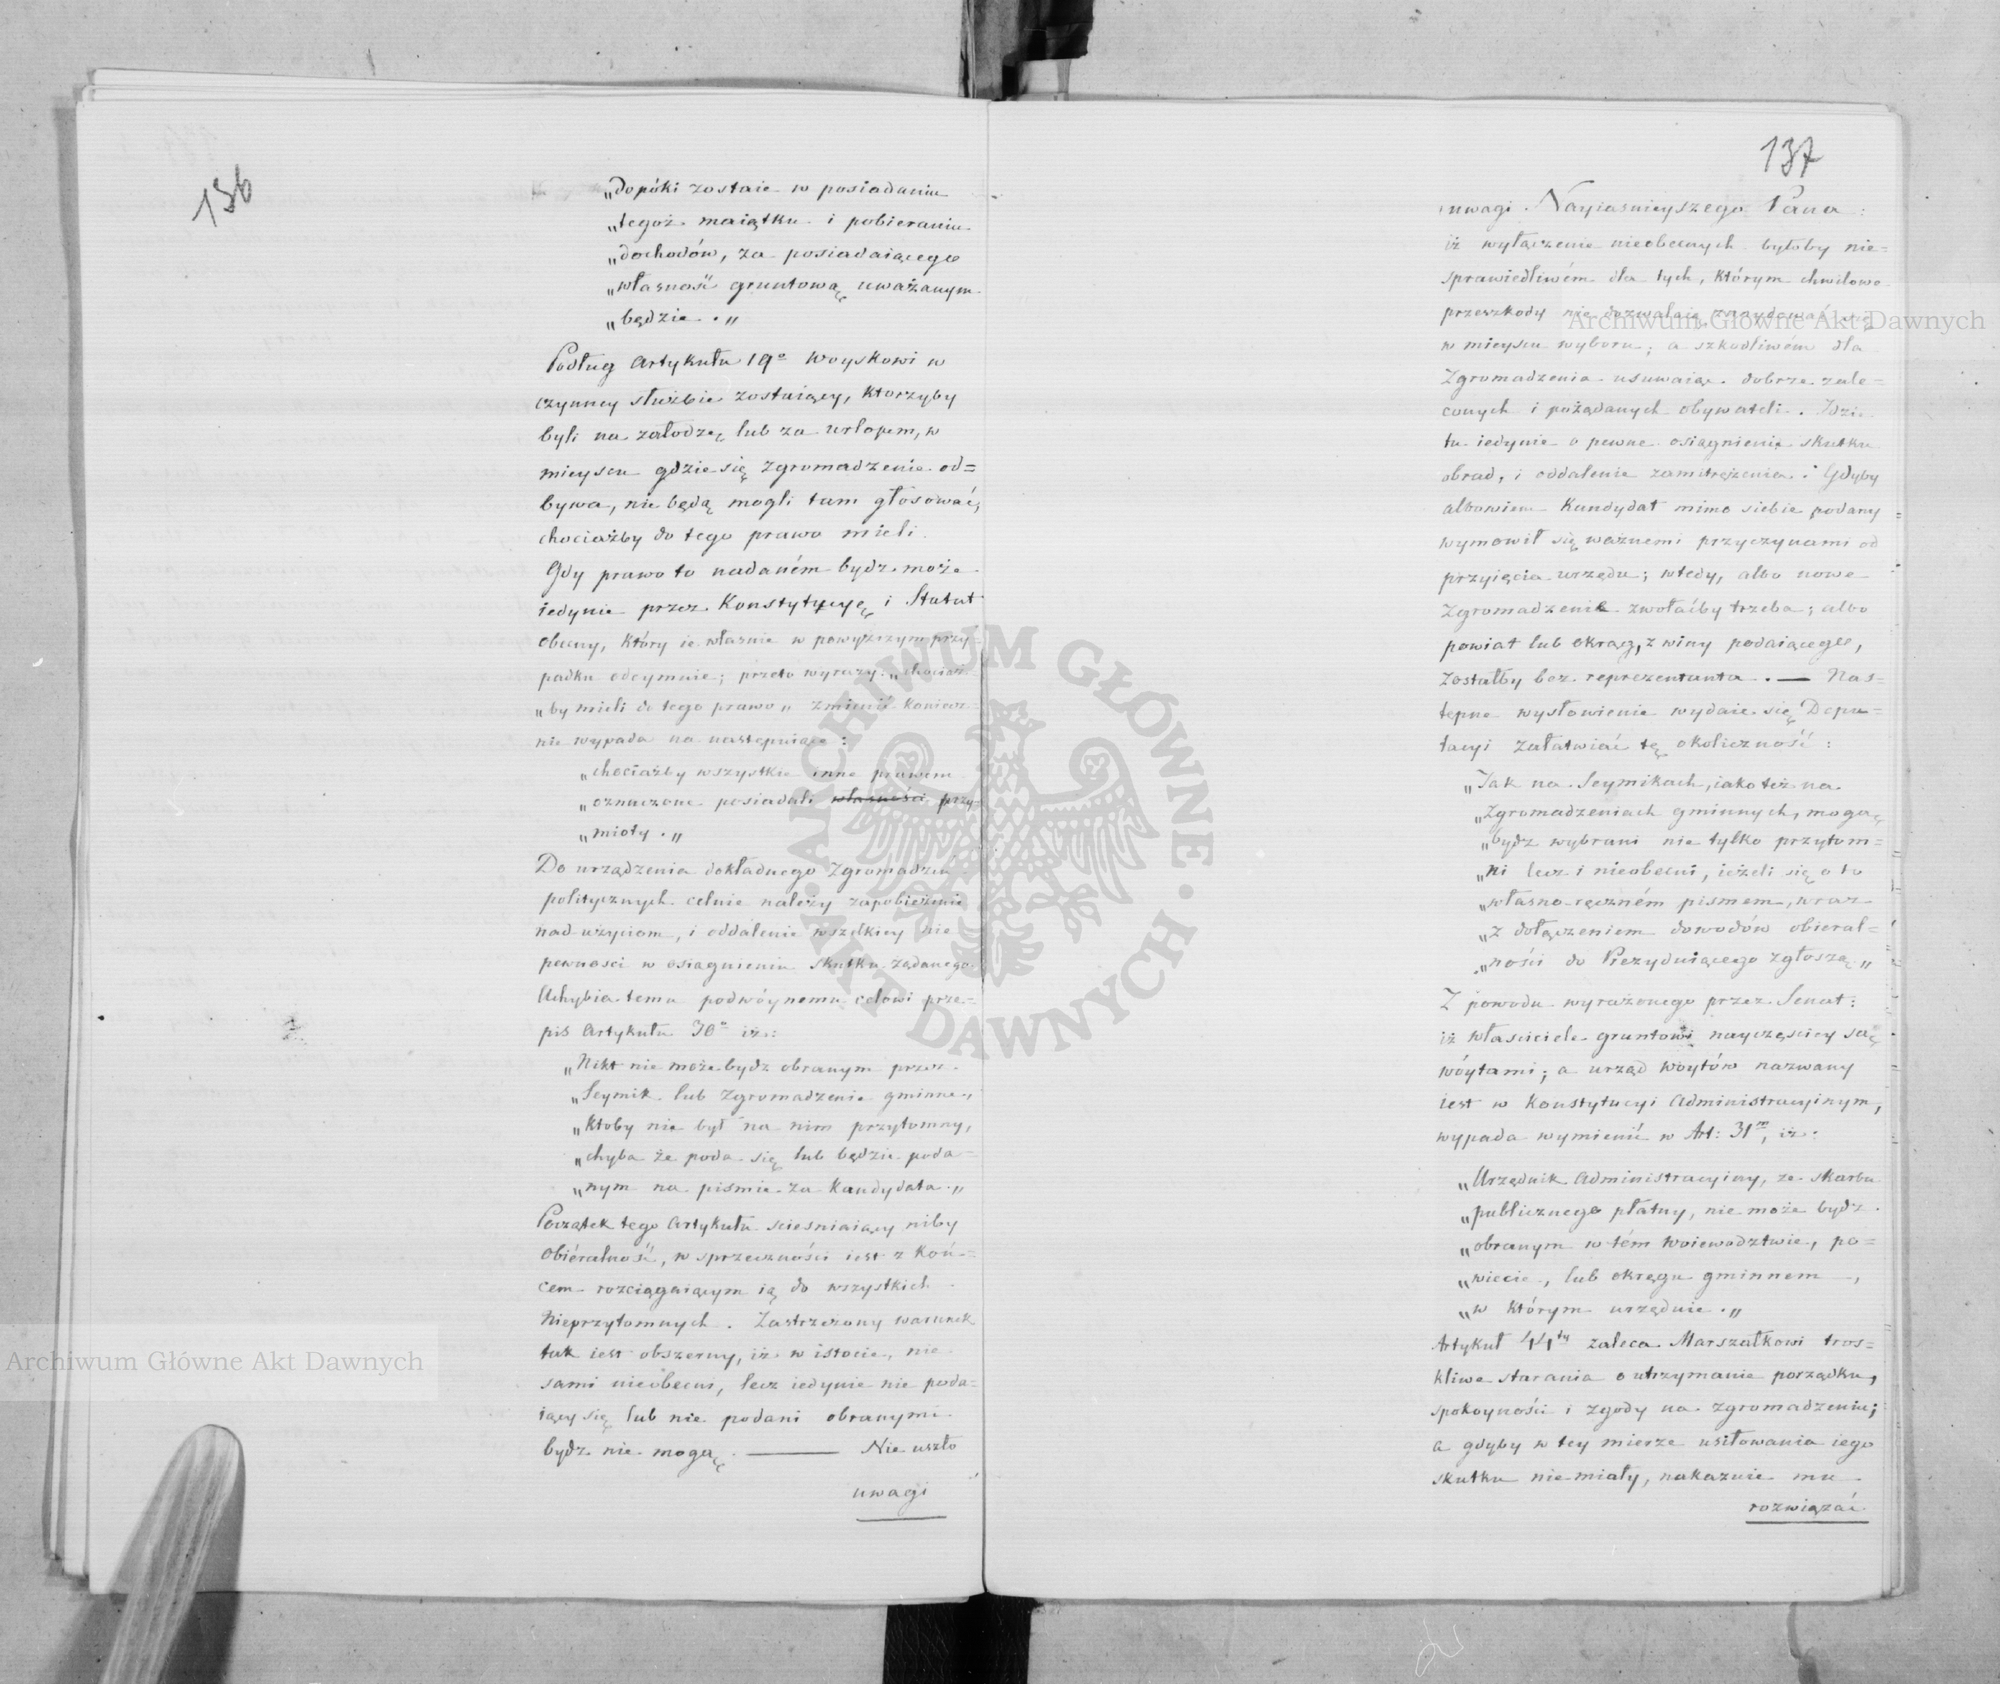 136
„dopóki zostaie w posiadaniu
„tegoż maiątku i pobieraniu
„dochodów, za posiadaiącego
„własność gruntową uważanym
„będzie.„
Podług Artykułu 19º Woyskowi w
czynney służbie zostaiący, ktorzyby
byli na załodzę lub za urlopem, w
mieyscu gdzie się Zgromadzenie od=
bywa, nie będą mogli tam głosować,
chociażby do tego prawo mieli.
Gdy prawo to nadaném bydz może
iedynie przez Konstytucyę i Statut
obecny, który ie własnie w powyższym przy=
padku odeymuie; przeto wyrazy: „chociaż=
„by mieli do tego prawo„ zmienić koniecz=
nie wypada na następuiące:
„chociażby wszystkie inne prawem
„oznaczone posiadali własności przy=
„mioty.„
Do urządzenia dokładnego Zgromadzeń
politycznych celnie należy zapobieżenie
nadużyciom, i oddalenie wszelkiey nie
pewnosci w osiągnieniu skutku żądanego.
Uchybia temu podwóynemu celowi prze=
pis Artykułu 30º iż:
„Nikt nie może bydz obranym przez
„Seymik lub Zgromadzenie gminne,
„ktoby nie był na nim przytomny,
„chyba że poda się lub będzie poda=
„nym na pismie za Kandydata.„
Początek tego Artykułu scieśniaiący niby
Obiéralność, w sprzeczności iest z Koń=
cem rozciągaiącym ią do wszystkich
Nieprzytomnych. Zastrzeżony warunek
tak iest obszerny, iż w istocie, nie
sami nieobecni, lecz iedynie nie poda=
iący się lub nie podani obranymi
bydz nie mogą. — Nie uszło
uwagi
137
uwagi Nayiasnieyszego Pana:
iż wyłączenie nieobecnych byłoby nie=
sprawiedliwém dla tych, którym chwilowe
przeszkody nie dozwalaią znaydować się
w mieyscu wyboru; a szkodliwém dla
Zgromadzenia usuwaiąc dobrze zale=
conych i pożądanych obywateli. Idzie
tu iedynie o pewne osiągnienie skutku
obrad, i oddalenie zamitrężenia: Gdyby
albowiem Kandydat mimo siebie podany
wymowił się ważnemi przyczynami od
przyięcia urzędu; wtedy, albo nowe
Zgromadzenie zwołaćby trzeba; albo
powiat lub okrąg, z winy podaiącego,
zostałby bez reprezentanta. — Nas=
tępne wysłowienie wydaie się Depu=
tacyi załatwiać tę okoliczność:
„Jak na Seymikach, iako też na
„Zgromadzeniach gminnych, mogą
„bydz wybrani nie tylko przytom=
„ni lecz i nieobecni, ieżeli się o to
„własno-ręczném pismem, wraz
„z dołączeniem dowodów obieral=
„ności do Prezyduiącego zgłoszą„
Z powodu wyrażonego przez Senat:
iż własciciele gruntowi nayczęściey są
wóytami; a urząd woytów nazwany
iest w Konstytucyi Administracyinym,
wypada wymienić w Art: 31m, iż:
„Urzędnik Administracyiny, ze skarbu
„publicznego płatny, nie może bydz
„obranym w tém Woiewodztwie, po=
„wiecie, lub okręgu gminnem,
„w którym urzęduie.„
Artykuł 44ty zaleca Marszałkowi tros=
kliwe starania o utrzymanie porządku,
spokoyności i zgody na zgromadzeniu;
a gdyby w tey mierze usiłowania iego
skutku nie miały, nakazuie mu
rozwiązać
Archiwum Główne Akt Dawnych
Archiwum Główne Akt Dawnych
ARCHIWUM GŁÓWNE
AKT DAWNYCH